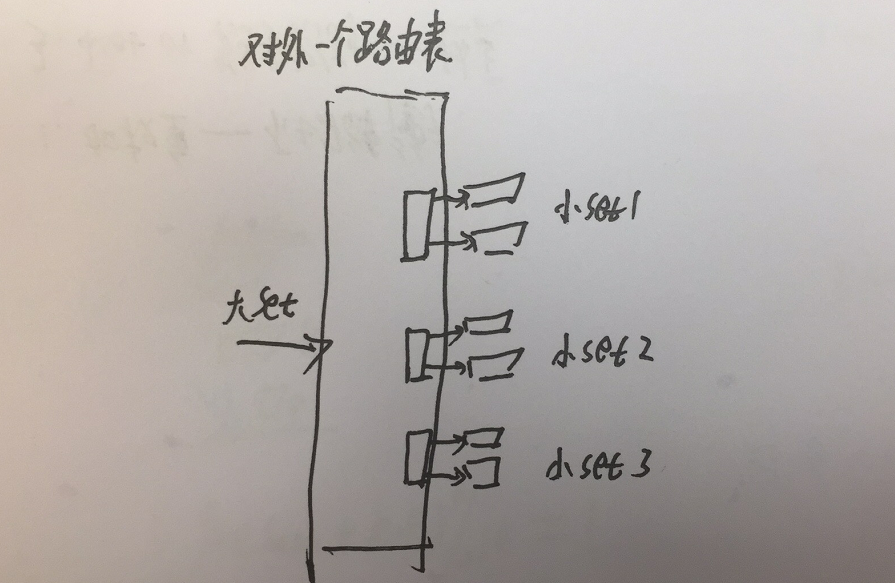 对外一个路由表
小set1
大set
小set2
小set3